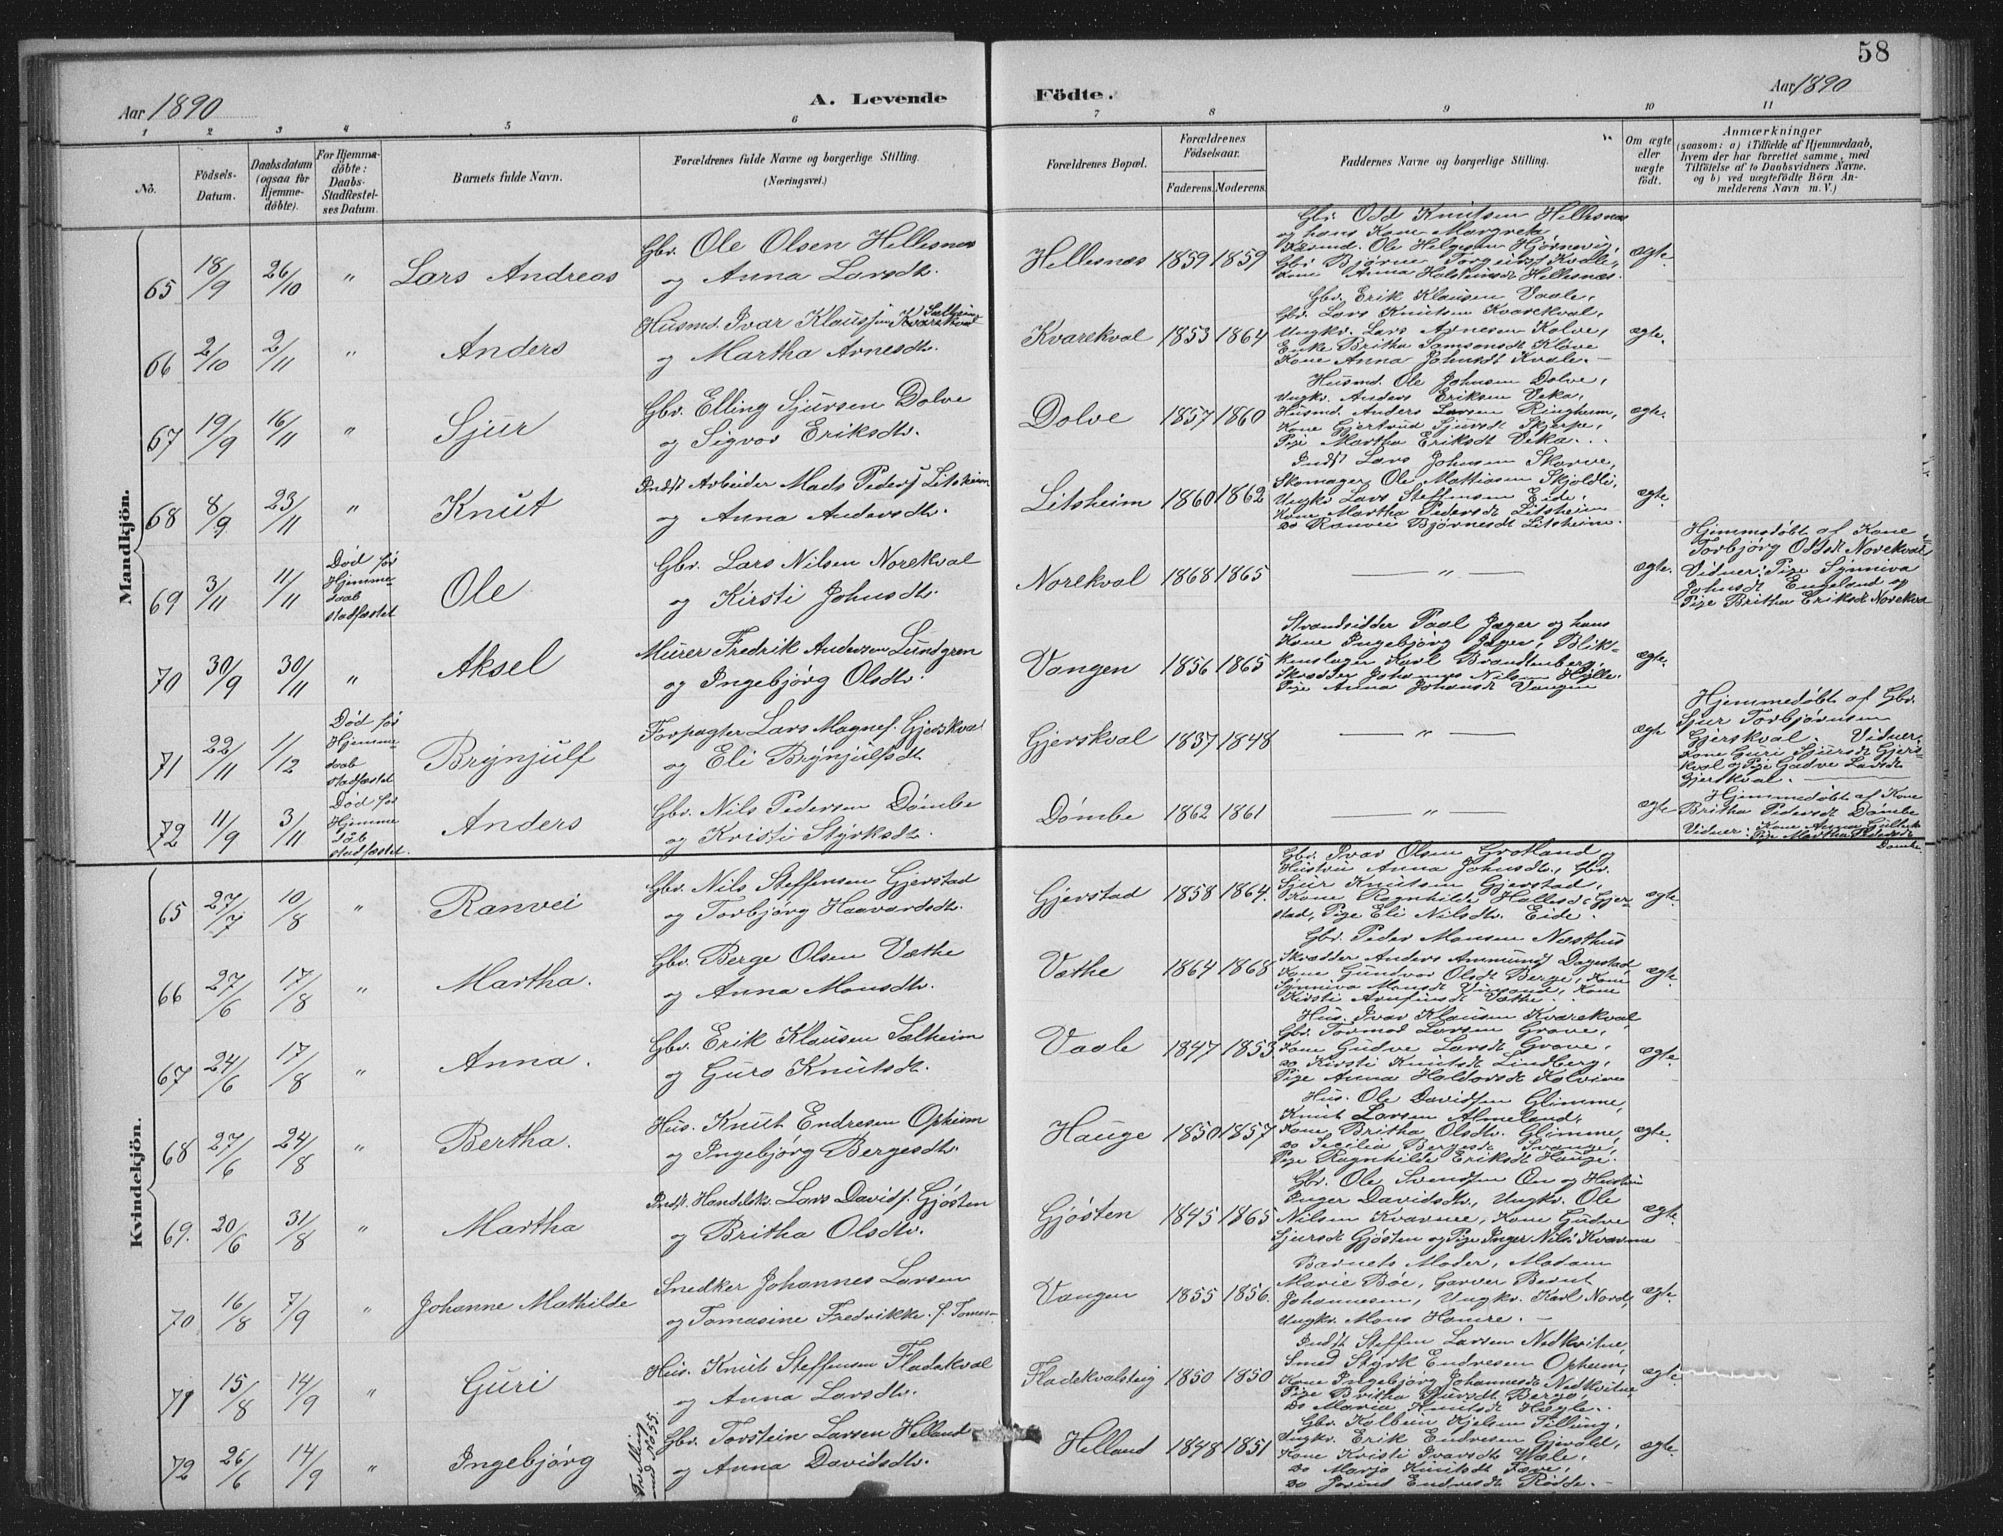 58
Aar 1890
A. Levende
Födte.
Aar 1890
1 2 3 4 5 6 7 8 9 10 11
No.
Födsels-
Datum.
Daabsdatum
(ogsaa for
Hjemme-
döbte).
For Hjemme-
döbte:
Daabs-
Stadfæstel-
ses Datum.
Barnets fulde Navn.
Forældrenes fulde Navne og borgerlige Stilling.
(Næringsvei.)
Forældrenes Bopæl.
Forældrenes
Födselsaar.
Faderens. Moderens.
Faddernes Navne og borgerlige Stilling.
Om ægte
eller
uægte
födt.
Anmærkninger
(saasom: a) i Tilfælde af Hjemmedaab,
hvem der har forrettet samme, med
Tilföielse af to Daabsvidners Navne.
og b) ved uægtefödte Börn An-
melderens Navn m. V.)
Mandkjön.
65 18/9 26/10 " Lars Andreas
Gbr. Ole Olsen Hellesnes
og Anna Larsdtr.
Hellesnæs 1859 1859
Gbr. Odd Knutsen Hellesnæs
og hans Kone Margrete
Husmd. Ole Helgesen Hjørnevig,
Gbr Bjørne Torgersf Kvale,
Kone Anna Holsteinsdt Hellesnæs.
ægte.
66 2/10 2/11 " Anders
Husmd. Ivar Klaussen Kvarekval
og Martha Arnesdtr.
Kvarekval 1853 1864
Gbr. Erik Klausen Vaale,
Gbr. Lars Knutsen Kvarekval,
Ungkr. Lars Arnesen Kolve,
Enke Britha Samsonsdt Kløve
Kone Anna Johnsdt Kvale. -
ægte.
67 19/9 16/11 " Sjur
Gbr. Elling Sjursen Dolve
og Sigvor Eriksdtr.
Dolve 1857 1860
Husmd. Ole Johnsen Dolve,
Ungkr. Anders Eriksen Veka,
Husmd. Anders Larsen Ringheim,
Kone Gjertrud Sjursdt Skjerpe,
Pige Martha Eriksdt Veka.
ægte.
68 8/9 23/11 " Knut
Indst Arbeider Mads Pedersf Litsheim
og Anna Andersdtr.
Litsheim 1860 1862
Indst Lars Johnsen Skorve,
Skomager Ole Mathiasen Skjoldli,
Ungkr Lars Steffensen Eide,
Kone Martha Pedersdt Litsheim
do Ranvei Bjørnesdt Litsheim.
ægte.
69 3/11 11/11
Død før
Hjemme
daab
stadfæstet
Ole
Gbr. Lars Nilsen Norekval
og Kirsti Johnsdtr.
Norekval 1868 1865
— " —
ægte.
Hjemmedøbt af Kone
Torbjørg Oddsdt Norekval
Vidner: Pige Synniva
Johnsdt Engeland og
Pige Britha Eriksdt Norekva
70 30/9 30/11 " Aksel
Murer Fredrik Andersen Lundgren
og Ingebjørg Olsdtr.
Vangen 1856 1865
Strandsidder Paal Jæger og hans
Kone Ingebjørg Jæger, Blik-
kenslager Karl Brandtenberg,
Skrædder Johannes Nilsen Hylle.
Pige Anna Johansdt Vangen
ægte.
71 22/11 1/12
Død før
Hjemme-
daab
stadfæstet
Brynjulf
Forpagter Lars Magnef. Gjerskval
og Eli Brynjulfsdt.
Gjerskval 1837 1848
— " —
ægte
Hjemmedøbt af Gbr.
Sjur Torbjørnsen
Gjerskval. Vidner
Kone Guri Sjursdt Gjers-
kval og Pige Gudve Larsdt
Gjerskval.
72 11/9 3/11
Død før
Hjemme
dåb
stadfæstet.
Anders
Gbr. Nils Pedersen Dømbe
og Kristi Styrksdtr.
Dømbe 1862 1861
— " —
ægte
Hjemmedøbt af Kone
Britha Pedersdt Dømbe
Vidner: Kone Anna
Pige Martha Pedersdt
Dømbe.
Kvindekjön.
65 27/7 10/8 " Ranvei
Gbr. Nils Steffensen Gjerstad
og Torbjørg Haavardsdtr.
Gjerstad 1858 1864.
Gbr. Ivar Olsen Grotland og
Hustru Anna Johnsdt, Gbr.
Sjur Knutsen Gjerstad,
Kone Ragnhilde Hallesdt Gjer-
stad, Pige Eli Nilsdtr. Eide.
ægte.
66 27/6 17/8 " Martha.
Gbr. Berge Olsen Væthe
og Anna Monsdtr.
Væthe 1864 1868
Gbr. Peder Monsen Næsthus
Skrædder Anders Ammundsf Dagestad,
Kone Gundvor Olsdt Berge, Kone
Synniva Monsdt Vinsand, Kone
Kirsti Arnfinsdt Væthe.
ægte.
67 24/6 17/8 " Anna.
Gbr. Erik Klausen Sælheim
og Guro Knutsdtr.
Vaale 1847 1853
Hus. Ivar Klausen Kvarekval,
Gbr. Tormod Larsen Grove,
Kone Gudve Larsdt Grove,
do Kirsti Knutsdt Lindberg,
Pige Anna Haldorsdt Kolvine
ægte.
68 27/6 24/8 " Bertha.
Hus. Knut Endresen Opheim
og Ingebjørg Bergesdtr.
Hauge 1850 1857
Hus. Ole Davidsen Glimme,
Knut Larsen Almeland,
Kone, Britha Olsdtr. Glimme,
do Secilia Bergesdt Svange,
Pige Ragnhilde Eriksdt Hauge.
ægte.
69. 20/6 31/8 " Martha
Indst. Handelsk. Lars Davidsf. Gjøsten
og Britha Olsdtr.
Gjøsten 1845 1865
Gbr. Ole Svendsen Øn og Hustru
Inger Davidsdtr, Ungkr. Ole
Nilsen Kvarme, Kone Gudve
Sjursdt Gjøsten og Pige Inger Nilsd Kvarme
ægte.
70 16/8 7/9 " Johanne Mathilde
Snedker Johannes Larsen
og Tomasine Fredrikke. f. Tomes-
Vangen 1855 1856.
Barnets Moder, Madam
Marie Bøe, Garver Bernt
Johannesen, Ungkr. Karl Nord,
Ungkr. Mons Hamre. -
ægte.
71 15/8 14/9 " Guri
Hus. Knut Steffensen Fladekval
og Anna Larsdtr.
Fladekvalsteig 1850 1850
Indst Steffen Larsen Nedkvitne,
Smed Styrk Endresen Opheim,
Kone Ingebjørg Johannesdt Nedkvitne
Pige Britha Sjursdt Berge,
do Maria Knutsdt Høgle.
ægte.
72 26/6 14/9 " Ingebjørg
Tvilling
med No 55.
Gbr. Torstein Larsen Helland
og Anna Davidsdtr.
Helland 1848 1851
Gbr. Kolbein Kjelsen Tillung,
Ungkr. Erik Endresen Gjerald,
Kone Kristi Ivarsdt Væle,
do Marjo Knutsdt Fære,
do Jorind Endresdt Rødde. -
ægte.